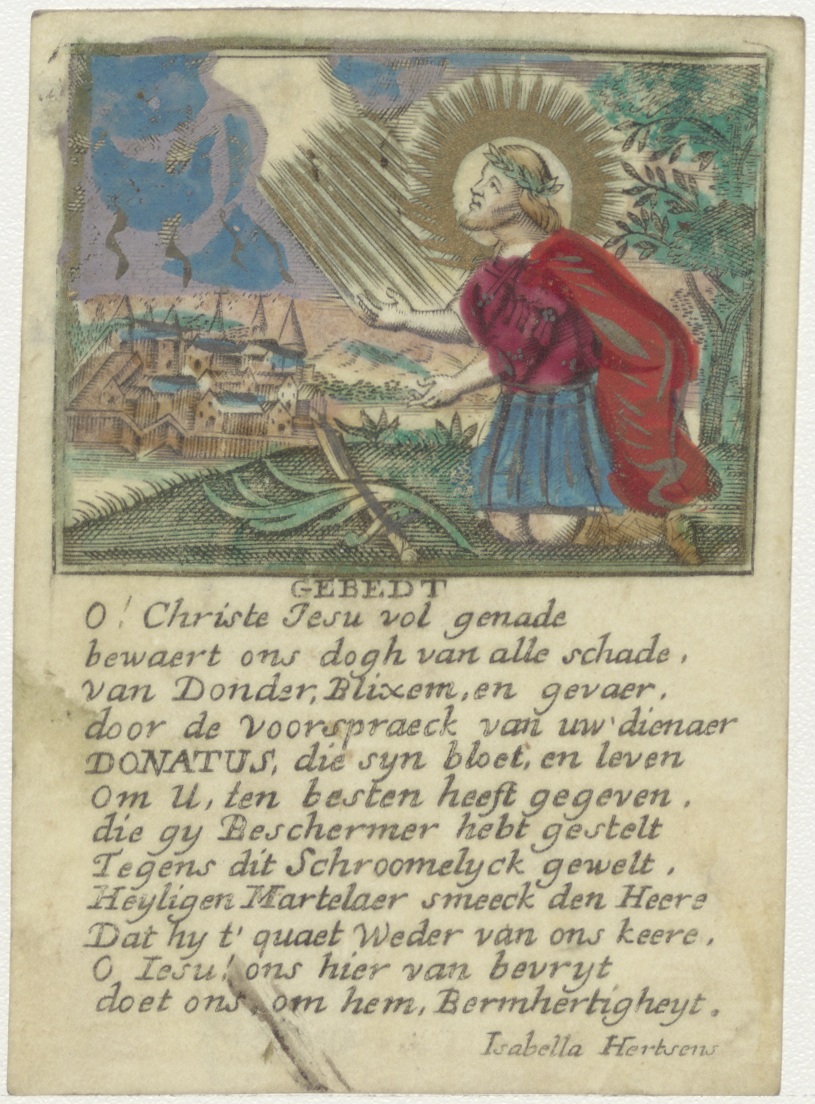 GEBEDT
O! Christe Iesu vol genade
bewaert ons dogh van alle schade,
van Donder, Blixem, en gevaer,
door de Voorspraeck van uw dienaer
DONATUS, die syn bloet, en leven
Om U, ten besten heeft gegeven,
die gy Beschermer hebt gestelt
Tegens dit Schroomelyck gewelt,
Heyligen Martelaer smeeck den Heere
Dat hy t' quaet Weder van ons keere,
O Iesu! ons hier van bevryt
doet ons, om hem, Bermhertigheyt.
Isabella Hertsens